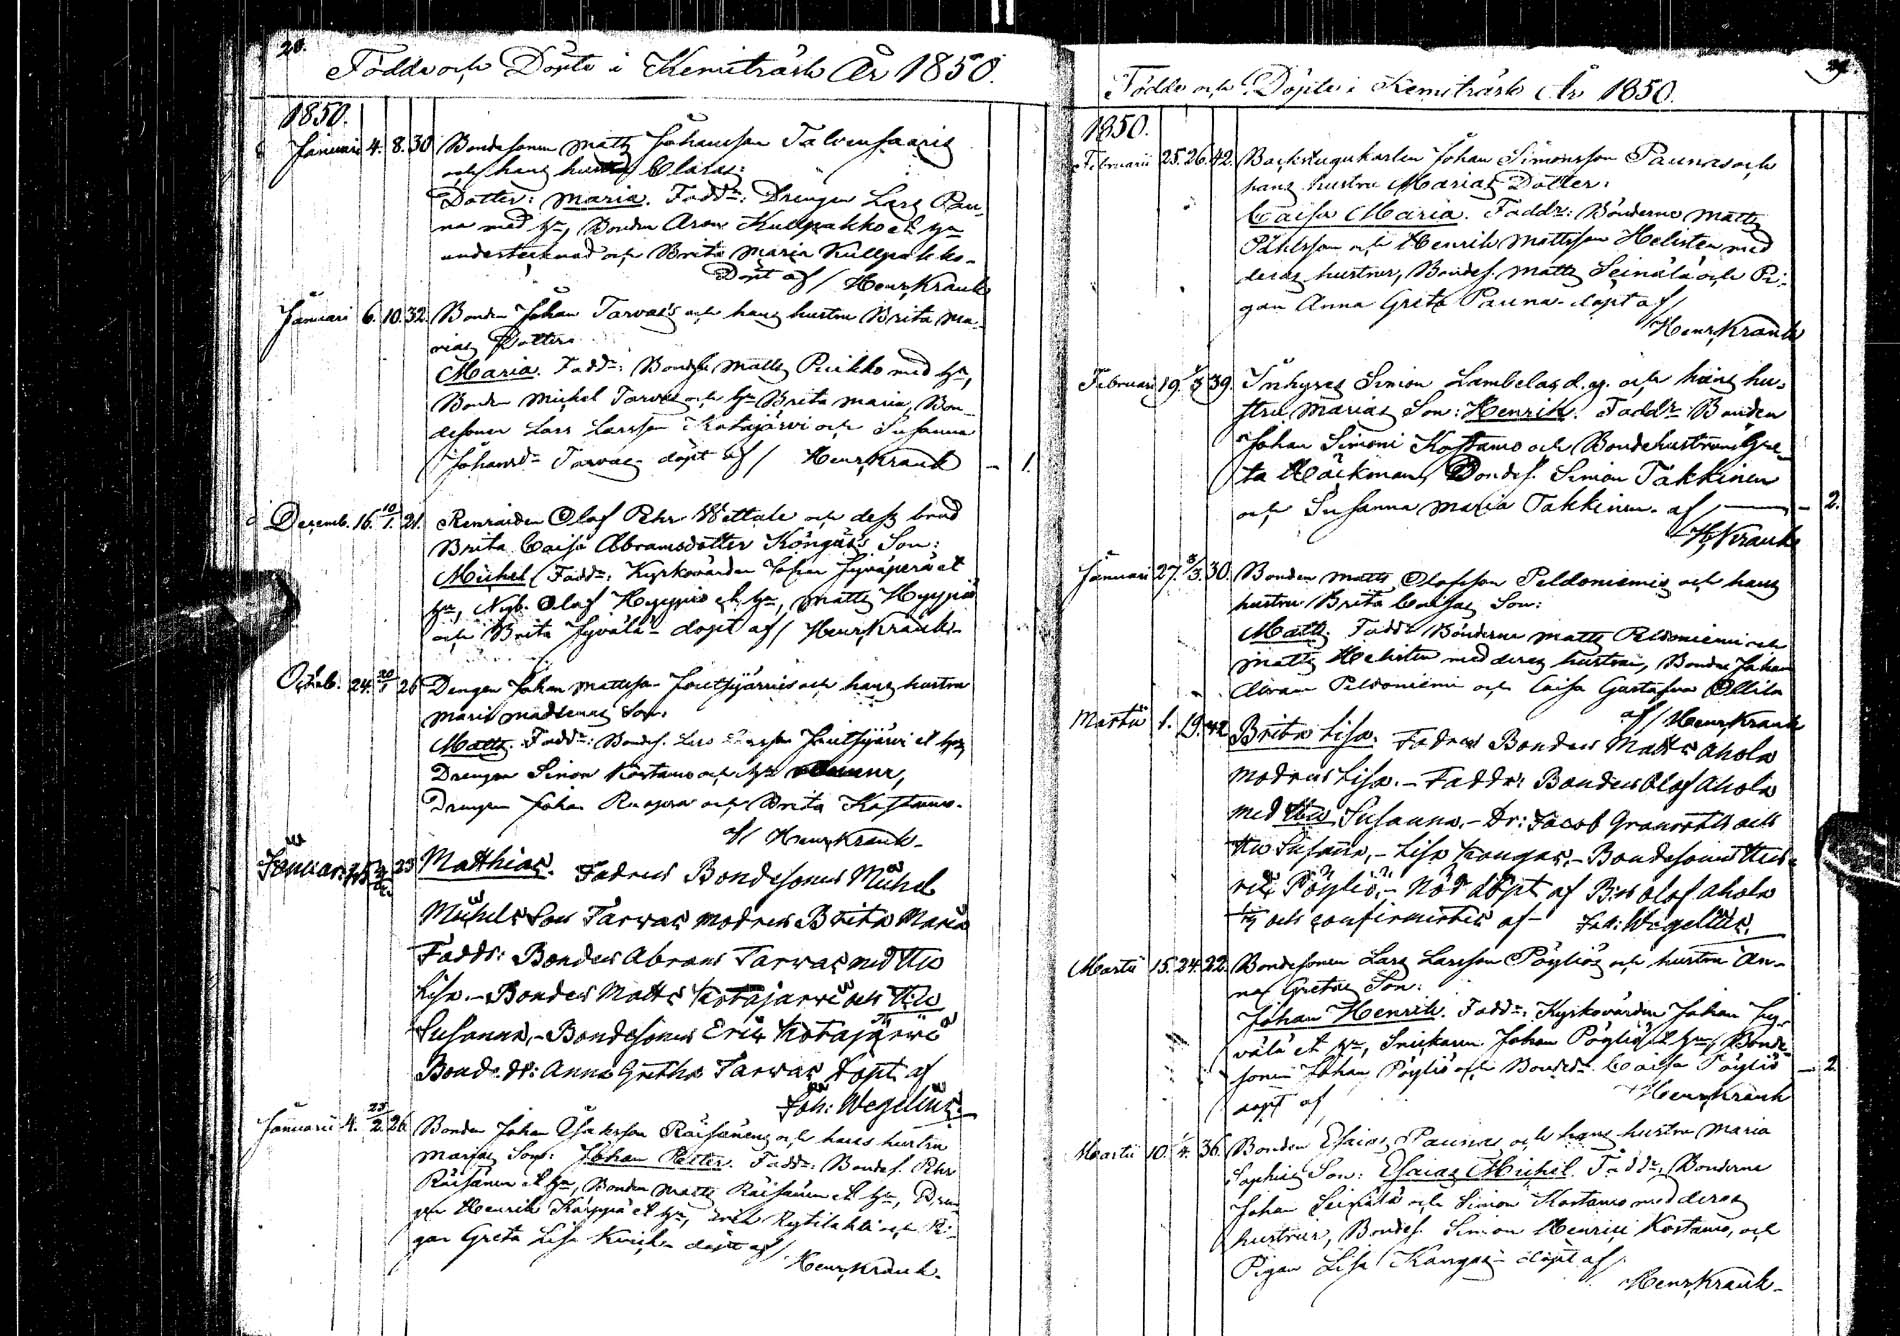 28.
Födde och Döpte i Kemiträsk År 1850.
1850.
Januari 4. 8. 30 Bondesonen Matts Johansson Talvensaaris
och hans hustru Claras:
Dotter: Maria. Fadd:r Drengen Lars Pau-
na med h:u, Bonden Aron Kullpakko et h:u
undertecknad och Brita Maria Kullpakko.
Döpt af / Henr. Kranck
Januari 6. 10. 32. Bonden Johan Tarvas och hans hustru Brita Ma-
rias Dotter
Maria. Fadd:r Bondes. Matts Puikko med h:u,
Bonden Michel Tarvas och h:u Brita Maria, Bon-
desonen Lars Larsson Kotajärvi och Susanna
Johansd:r Tarvas - döpt af / Henr. Kranck - 1.
Decemb. 16. 10/1. 21. Olof Pehr och dess brud
Brita Caisa Abramsdotter Köngäs's Son:
Michel. Fadd:r Kyrkovärden Johan Jyväperä et
h:u, Nyb. Olof Hyyppiö et h:u, Matts Hyyppiö
och Brita Jyvälä - döpt af / Henr. Kranck.
Octob. 24. 20/1 26 Drengen Johan Mattss. och hans hustru
Maria Son:
Matts. Fadd:r Bondes. et h:u,
Drengen Simon Kostamo och h:u
Drengen Johan och Brita Kostamo.
af / Henr. Kranck.
Januari 23 Matthias. Fadren Bondesonen Michel
Michels Son Tarvas modren Brita Maria
Faddr: Bonden Abram Tarvas med H:u
Lisa. - Bonden Matts Kotajärvi och H:u
Susanna, - Bondesonen Eric Kotajärvi
Bonde.dr: Anna Gretha Tarvas döpt af
Joh: Wegelius.
Januarii 4. 23/2. 26. Bonden Johan Esaksson Räisänens och hans hustru
Marias Son: Johan Petter. Fadd:r Bondes. Pehr
Räisänen et h:u, Bonden Matts Räisänen et h:u, Dren-
gen Henrik Kärppä et h:u, Erik Kytilahti och Pi-
gan Greta Lisa - döpt af /
Henr. Kranck.
29.
Födde och Döpte i Kemiträsk År 1850.
1850.
Februarii 25. 26. 42. Backstugukarlen Johan Simonsson Paunas och
hans hustru Marias Dotter:
Caisa Maria. Faddr: Bönderne Matts
Påhlsson och Henrik Mattsson Helisten med
deras hustrur, Bondes. Matts Seinälä och Pi-
gan Anna Greta Pauna - döpt af /
Henr. Kranck
Februari 19. 3/3 39. Inhyses Simon Lambelas d.y. och hans hu-
stru Marias Son: Henrik. Faddr: Bonden
Johan Simoni Kostamo och Bondehustrun Gre-
ta Häckman, Bondes. Simon Takkinen
och Susanna Maria Takkinen. af / - 2.
H. Kranck
Januari 27. 3/3. 30. Bonden Matts Olofsson Peldoniemis och hans
hustru Brita Caisas Son:
Matts. Fadd:r Bönderne Matts Peldoniemi och
Matts Helisten med deras hustrur, Bonden Johan
Peldoniemi och Caisa Gustafva Ollila
af / Henr. Kranck
Martii 1. 19. 42 Brita Lisa. Fadren Bonden Matts Ahola
Modren Lisa. - Faddr: Bonden Olof Ahola
med H:u Susanna. - Dr: Jacob Granroth och
H:u Susanna, - Lisa Kangas. - Bondesonen Hen-
ric Pöyliö, - Nöd döpt af B:n Olof Ahola
och confirmerts af - Joh: Wegelius.
Martii 15. 24. 22. Bondesonen Lars Larsson Pöyliös och hustru An-
na Gretas Son:
Johan Henrik. Fadd:r Kyrkovärden Johan Jy-
välä et h:u, Snickaren Johan Pöyliö et h:u, Bonde-
sonen Johan Pöyliö och Bonded:r Caisa Pöyliö - 2
döpt af Henr. Kranck
Martii 10. 1/4. 36. Bonden Esaias Paunas och hans hustru Maria
Sophias Son: Esaias Michel. Fadd:r Bönderne
Johan Seinälä och Simon Kostamo med deras
hustrur, Bondes. Simon Henrici Kostamo, och
Pigan Lisa Kangas - döpt af /
Henr. Kranck.